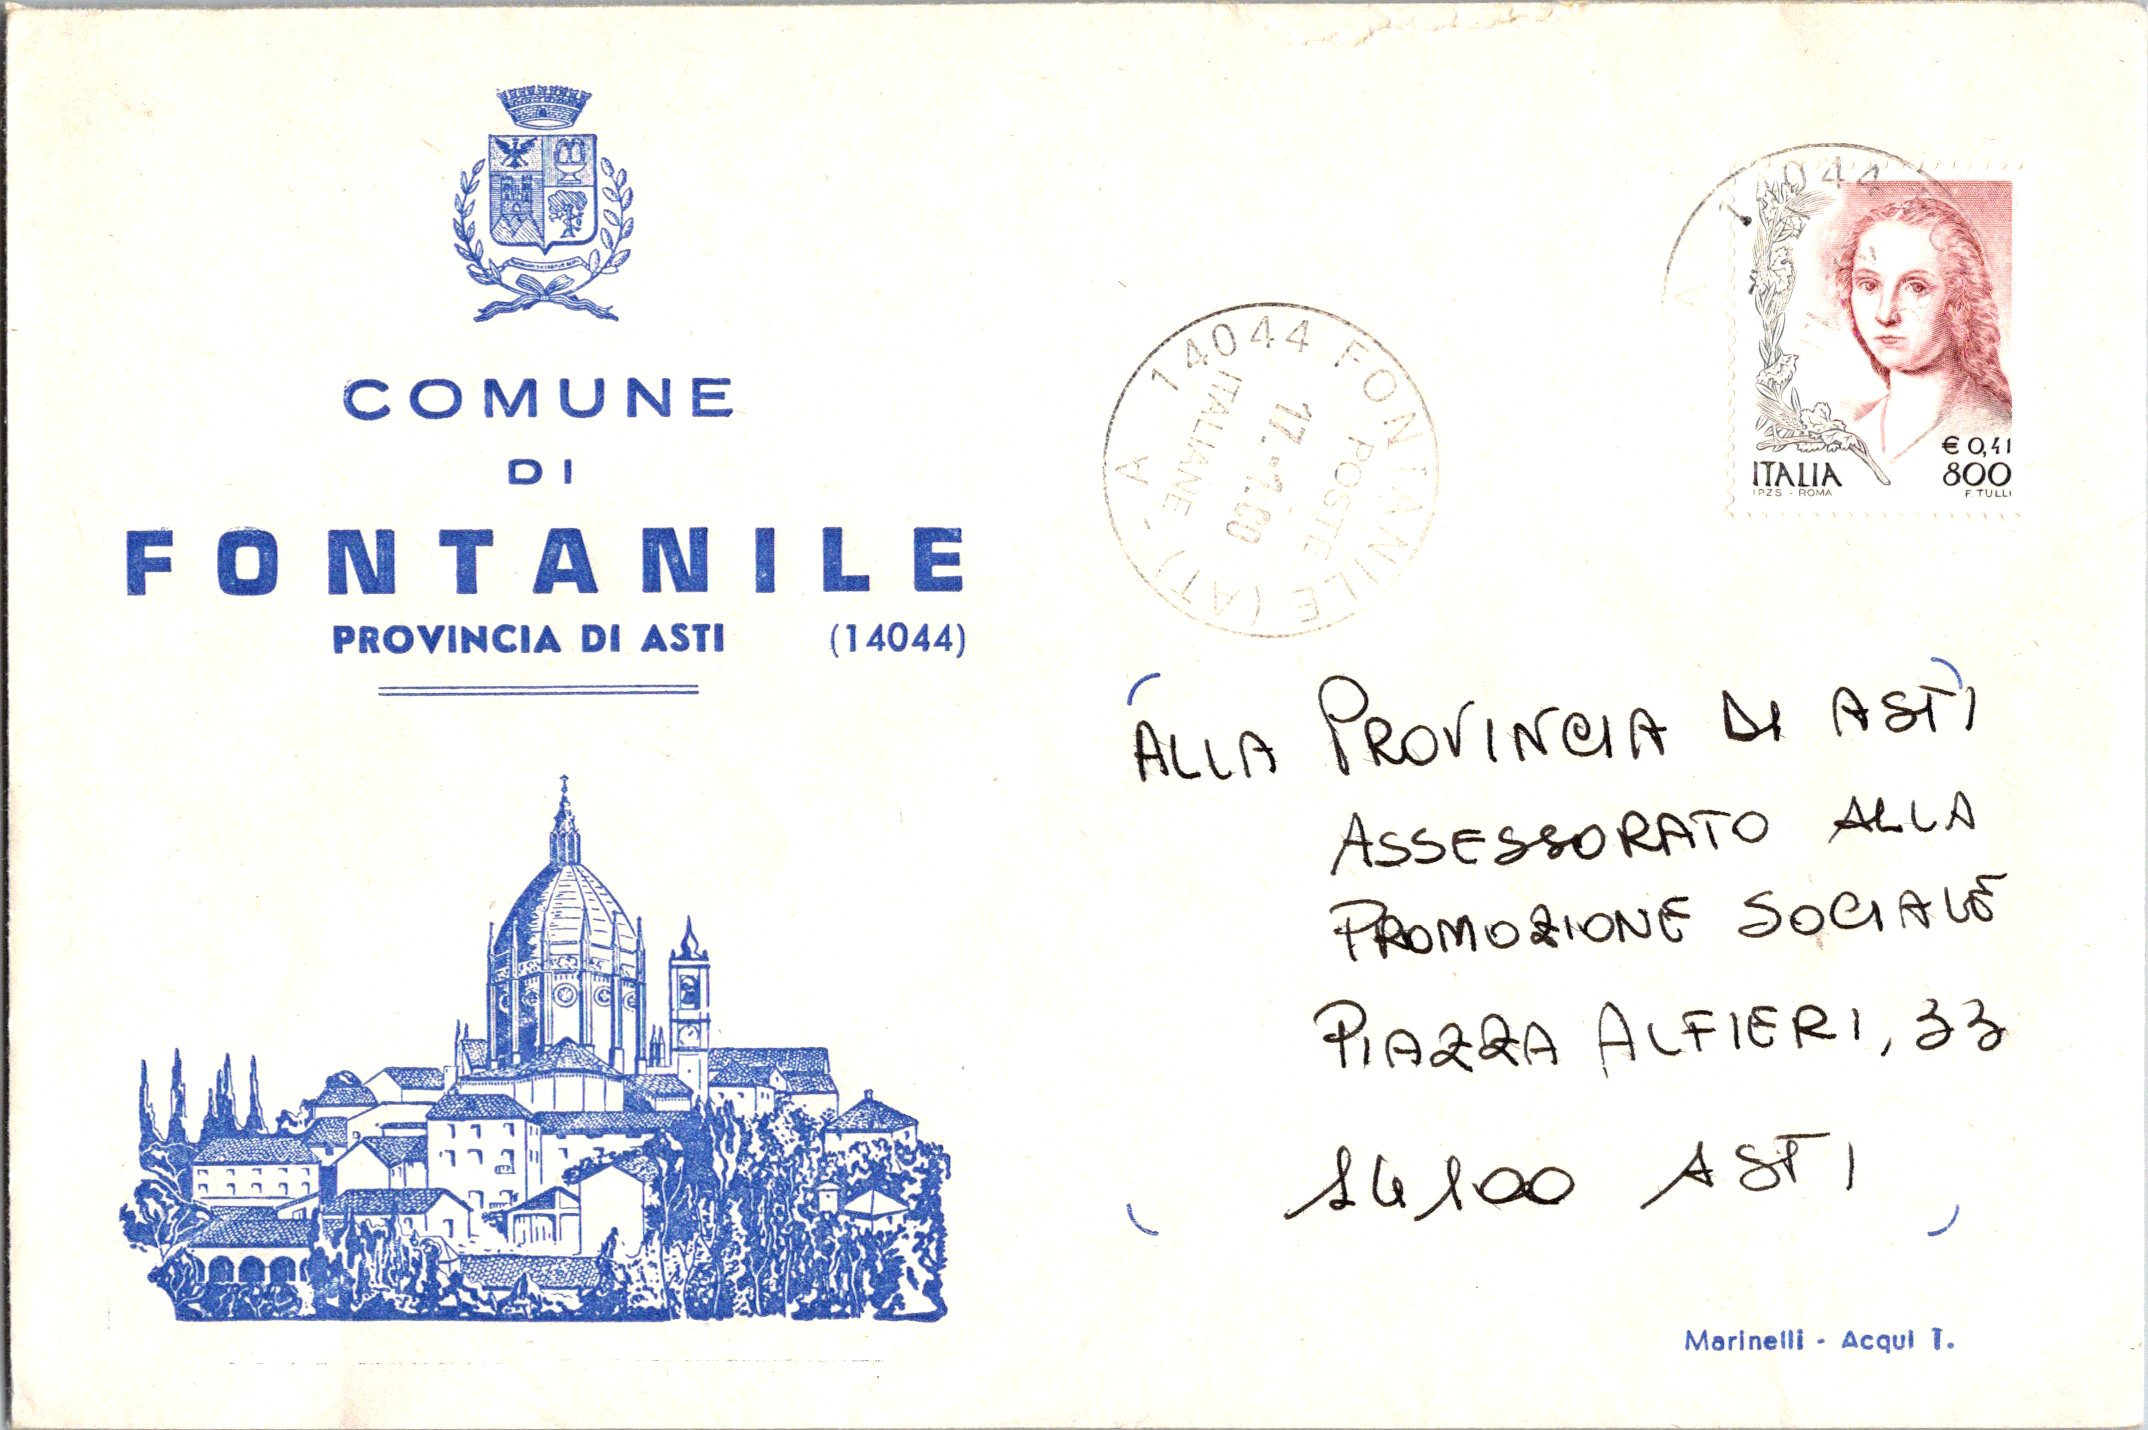 COMUNE
DI
FONTANILE
PROVINCIA DI ASTI (14044)
A 14044 FONTANILE (AT) - A
POSTE
17.-1.00
ITALIANE
14044
A
€ 0,41
ITALIA 800
I.P.Z.S. - ROMA F. TULLI
ALLA PROVINCIA DI ASTI
ASSESSORATO ALLA
PROMOZIONE SOCIALE
PIAZZA ALFIERI, 33
14100 ASTI
Marinelli - Acqui T.